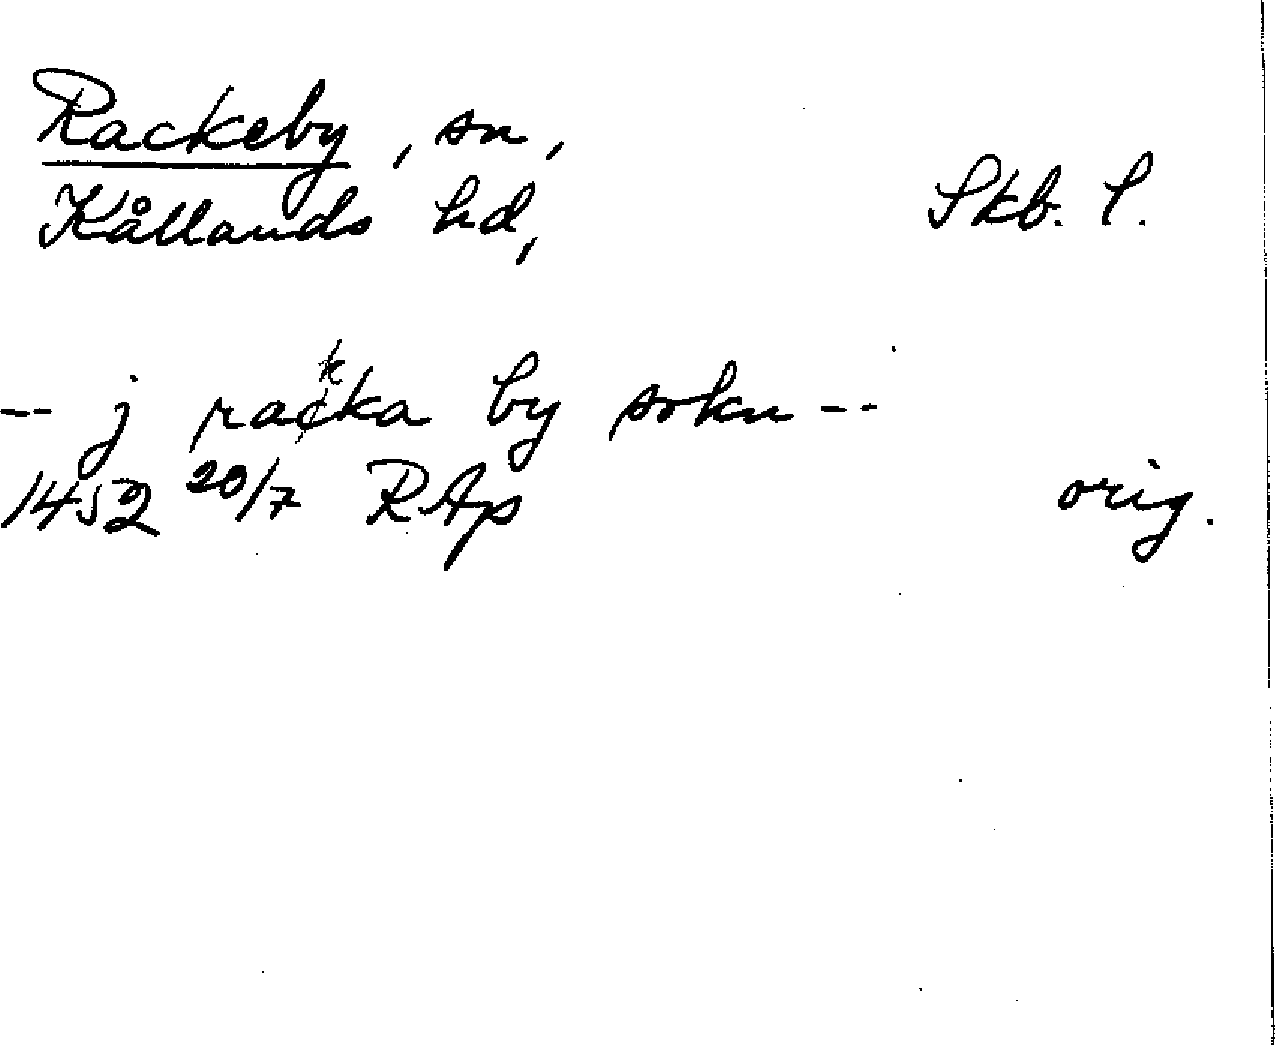 Rackeby, sn,
Kållands hd, Skb. l.
-- j rakka by sokn --
1452 20/7 RAp orig.